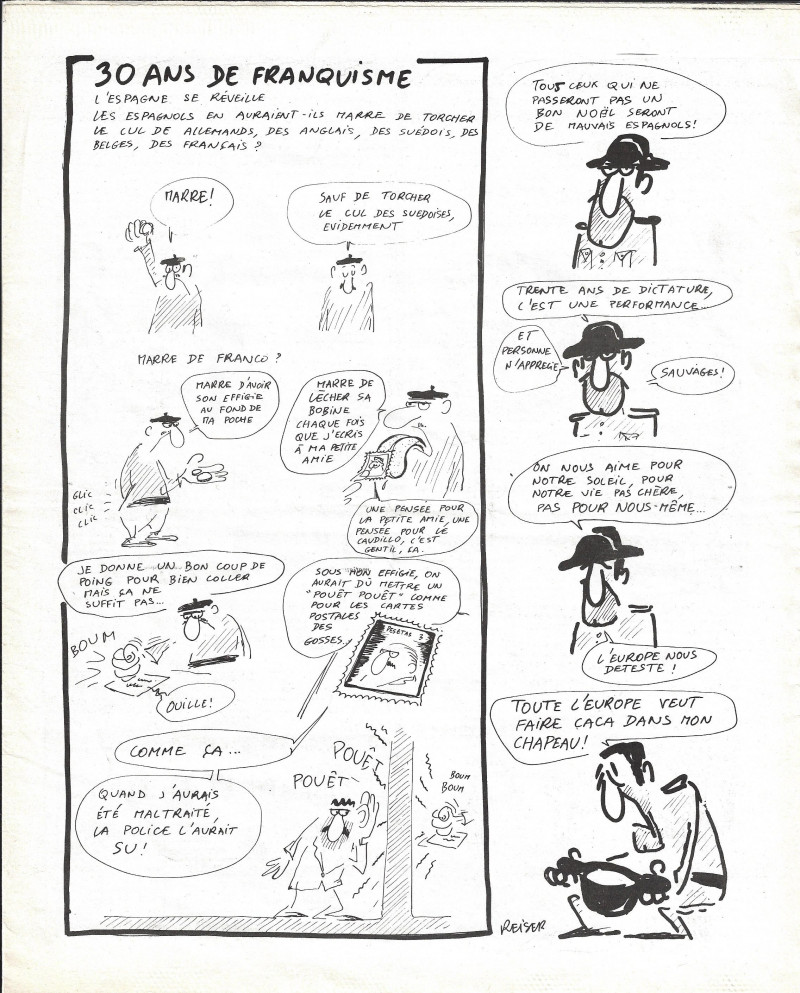 30 ANS DE FRANQUISME
L'ESPAGNE SE RÉVEILLE
LES ESPAGNOLS EN AURAIENT-ILS MARRE DE TORCHER
LE CUL DE ALLEMANDS, DES ANGLAIS, DES SUÉDOIS, DES
BELGES, DES FRANÇAIS ?
MARRE!
SAUF DE TORCHER
LE CUL DES SUEDOISES,
EVIDEMMENT
MARRE DE FRANCO ?
MARRE D'AVOIR
SON EFFIGIE
AU FOND DE
MA POCHE
GLIC
CLIC
CLIC
MARRE DE
LÈCHER SA
BOBINE
CHAQUE FOIS
QUE J'ECRIS
À MA PETITE
AMIE
UNE PENSÉE POUR
LA PETITE AMIE, UNE
PENSÉE POUR LE
CAUDILLO, C'EST
GENTIL, ÇA.
JE DONNE UN BON COUP DE
POING POUR BIEN COLLER
MAIS ÇA NE
SUFFIT PAS...
BOUM
OUILLE!
SOUS MON EFFIGIE, ON
AURAIT DÛ METTRE UN
"POUËT POUËT" COMME
POUR LES CARTES
POSTALES
DES
GOSSES...
PESETAS 3
COMME ÇA...
QUAND J'AURAIS
ÉTÉ MALTRAITÉ,
LA POLICE L'AURAIT
SU!
POUËT
POUËT
BOUM
BOUM
TOUS CEUX QUI NE
PASSERONT PAS UN
BON NOËL SERONT
DE MAUVAIS ESPAGNOLS!
TRENTE ANS DE DICTATURE,
C'EST UNE PERFORMANCE...
ET
PERSONNE
N'APPRECIE
SAUVAGES!
ON NOUS AIME POUR
NOTRE SOLEIL, POUR
NOTRE VIE PAS CHÈRE,
PAS POUR NOUS-MÊME...
L'EUROPE NOUS
DETESTE !
TOUTE L'EUROPE VEUT
FAIRE CACA DANS MON
CHAPEAU!
REISER